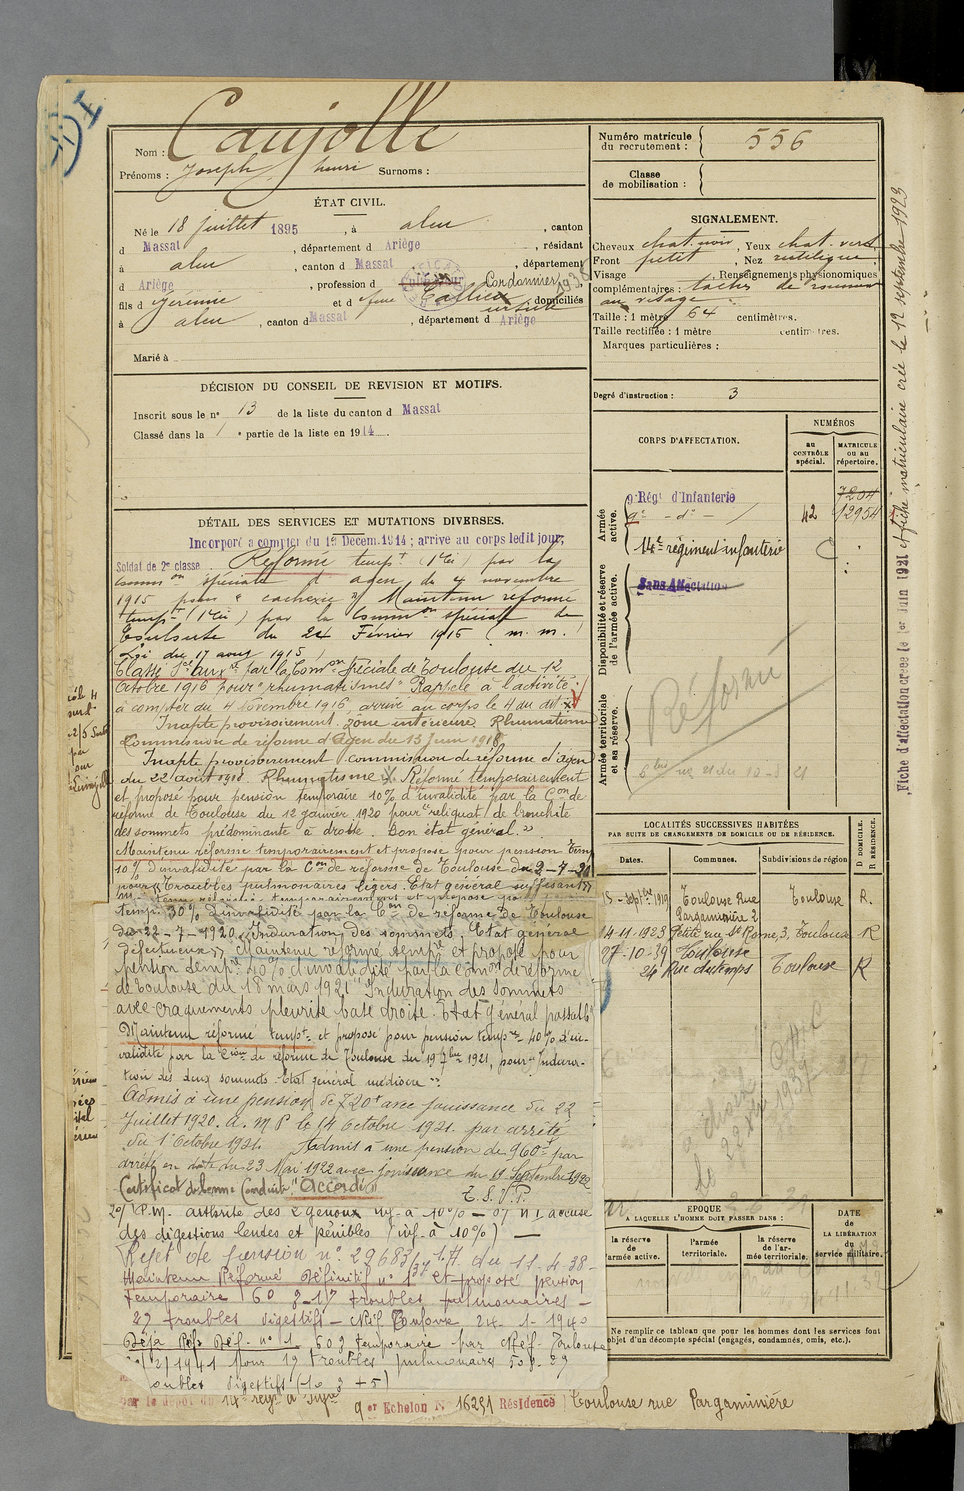 Nom : Caujolle
Prénoms : Joseph henri Surnoms :
ÉTAT CIVIL.
Né le 18 juillet 1895, à aleu, canton
d Massat, département d Ariège, résidant
à aleu, canton d Massat, département
d Ariège, profession d cultivateur Cordonnier
fils d Jérémie et d feue domiciliés
à aleu, canton d Massat, département d Ariège
Marié à
DÉCISION DU CONSEIL DE REVISION ET MOTIFS.
Inscrit sous le n° 13 de la liste du canton d Massat
Classé dans la 1 e partie de la liste en 1914.
DÉTAIL DES SERVICES ET MUTATIONS DIVERSES.
Incorporé à compter du Décem. 1914 ; arrivé au corps ledit jour,
Soldat de 2e classe. Réformé tempt (1re Cie) par la
common spéciale d'agen du 4 novembre
1915 pour "cachexie" Maintenu réformé
tempt par la Common spéciale de
Toulouse du 24 Février 1916 (m. m.)
Loi du 17 aout 1915
Classé Sce auxre par la Comon Spéciale de Toulouse du 12
Octobre 1916 pour "rhumatismes" Rappelé à l'activité
à compter du 4 Novembre 1916, arrivé au corps le 4 du dit
Inapte provisoirement. Zone intérieure. Rhumatisme
Commission de réforme d'Agen du 13 Juin 1918
Inapte provisoirement commission de réforme d'agen
du 22 août 1918. Rhumatisme. Réformé temporairement
et proposé pour pension temporaire 10% d'invalidité par la Con de
réforme de Toulouse du 12 janvier 1920 pour "reliquat de bronchite
des sommets prédominante à droite. Bon état général."
Maintenu réformé temporairement et proposé pour pension temp
10% d'invalidité par la Con de réforme de Toulouse du 2-7-20
pour "Troubles pulmonaires légers. Etat général suffisant"
temp. 30% d'invalidité par la Con de réforme de Toulouse
du 22-7-1920 "Induration des sommets. Etat général
défectueux" Maintenu réformé tempre et proposé pour
pension tempre 40% d'invalidité par la Comon de réforme
de Toulouse du 18 mars 1921 "Induration des sommets
avec craquements pleurite base droite. Etat général passable"
Maintenu réformé tempt et proposé pour pension tempre 40% d'in-
validité par la Cion de réforme de Toulouse du 19 7bre 1921, pour "Indura-
tion des deux sommets. Etat général médiocre".
Admis à une pension de 720f avec jouissance du 22
Juillet 1920. A. M P le 14 Octobre 1921. par arrêté
du 1 Octobre 1921. Admis à une pension de 960f par
arrêté en date du 23 Mai 1922 avec jouissance du 19 Septembre 1922
Certificat de bonne Conduite "Accordé"
T. S. V. P.
2o/ P.M. arthrite des 2 genoux inf. à 10% - accuse
des digestions lentes et pénibles (inf. à 10%)
Rejet de pension n° 296831 du 11-4-38-
Maintenu Réformé Définitif n° 1 et proposé pension
temporaire 60 % 1°/ troubles pulmonaires -
2°/ troubles digestifs - Réf Toulouse 24-1-1940
Déjà Réf Déf. n° 1 60 % temporaire par Réf. Toulouse
1941 pour 1°/ troubles pulmonaires 50 % 2°/
troubles digestifs (10 % + 5)
par le dépôt du 14e régt d'Infie er Echelon N° 16251 Résidence Toulouse rue Pargaminière
Numéro matricule du recrutement : 556
Classe de mobilisation :
SIGNALEMENT.
Cheveux chat. noir, Yeux chat. vert
Front petit, Nez rectiligne
Visage Renseignements physionomiques
complémentaires : taches de rousseur
au visage
Taille : 1 mètre 64 centimètres.
Taille rectifiée : 1 mètre centimètres.
Marques particulières :
Degré d'instruction : 3
CORPS D'AFFECTATION.
NUMÉROS
au CONTRÔLE spécial.
MATRICULE ou au répertoire.
Armée active.
9e Régt d'Infanterie 7204
9e - do - 42 12954
14e régiment infanterie
Disponibilité et réserve de l'armée active.
Sans Affectation
Armée territoriale et sa réserve.
Réformé
LOCALITÉS SUCCESSIVES HABITÉES
PAR SUITE DE CHANGEMENTS DE DOMICILE OU DE RÉSIDENCE.
Dates. Communes. Subdivisions de région D DOMICILE. R RÉSIDENCE.
15 - Septbre 1919 Toulouse Rue Toulouse R.
Pargaminière 2
14-11-1923 Petite rue St Rome, 3, Toulouse R
27-10-39 Toulouse
24 Rue du temps Toulouse R
le 22 1937
ÉPOQUE
A LAQUELLE L'HOMME DOIT PASSER DANS :
la réserve de l'armée active.
l'armée territoriale.
la réserve de l'armée territoriale.
DATE de LA LIBÉRATION du service militaire.
Ne remplir ce tableau que pour les hommes dont les services font
objet d'un décompte spécial (engagés, condamnés, omis, etc.).
Fiche d'affectation créée le 1er Juin 1921 et fiche matriculaire créée le 12 septembre 1923